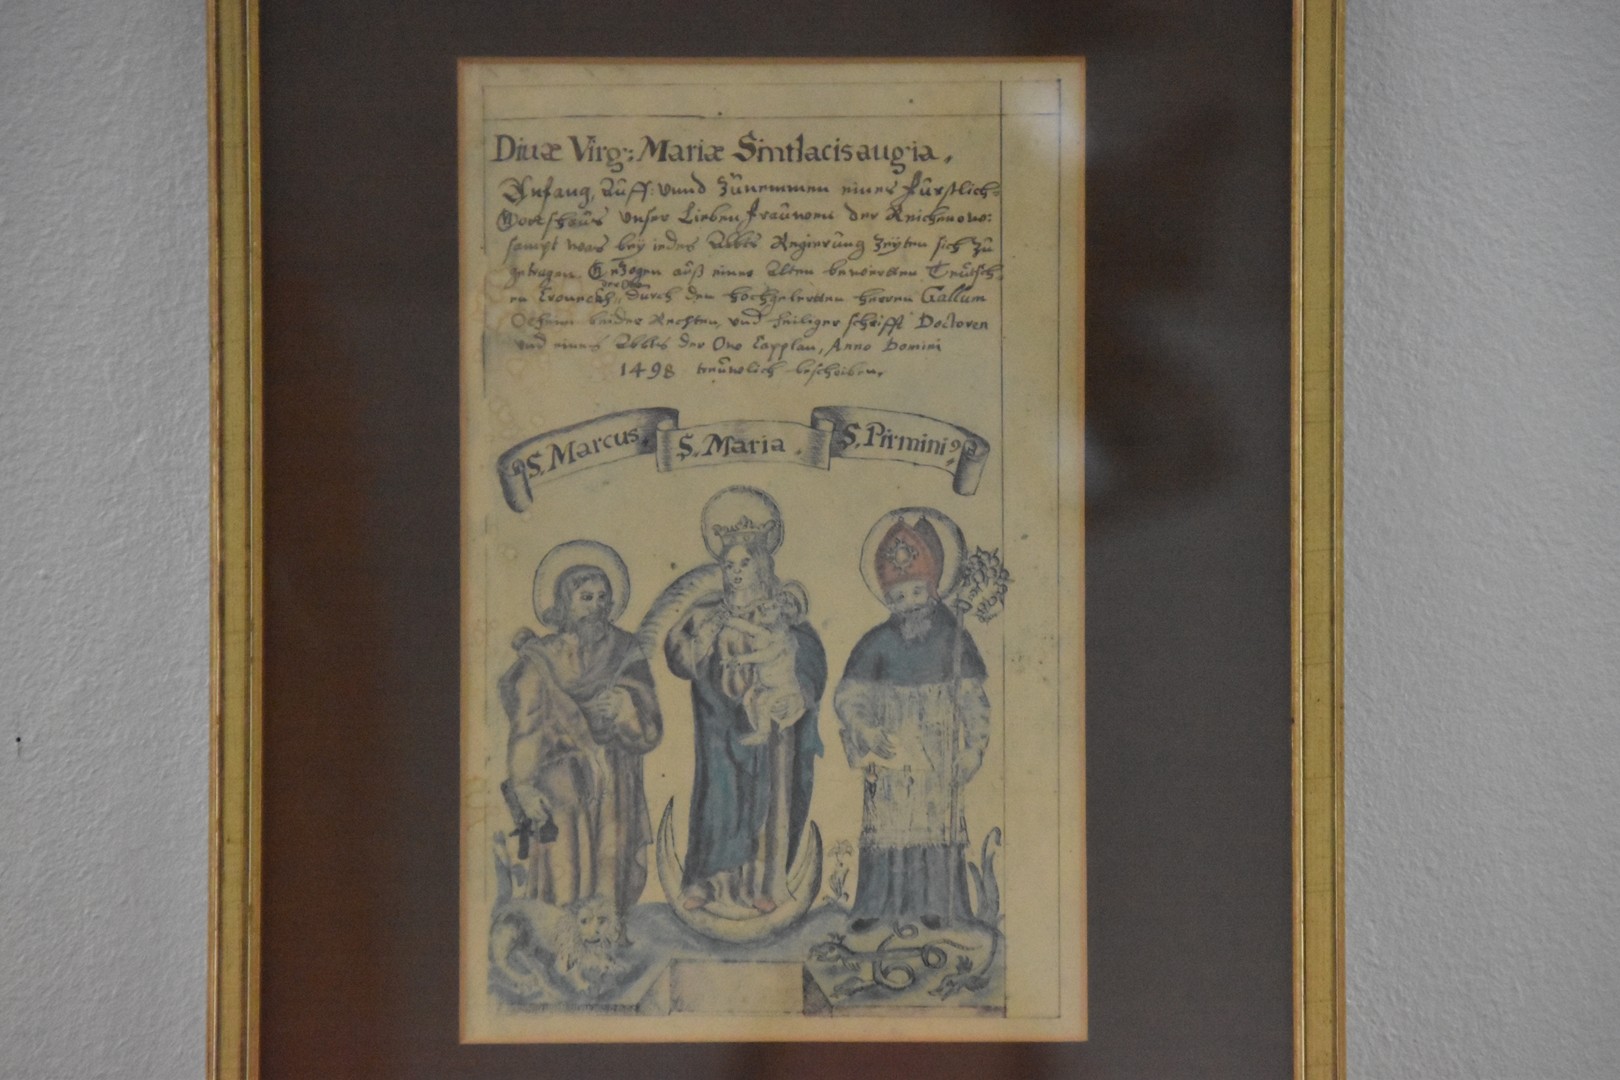 Diuæ Virg: Mariæ Sintlacisaugia.
Anfang, Auff: vnnd Zůnemmen eines Fürstlich-
Gottshauß vnser Lieben frauwen der Reichenow:
sampt was bey iedes Abbts Regierung Zeyten sich Zů
getragen. Gezogen auß einer Alten bewerten Teutsch-
en Cronickh, durch den hochgelertten herren Gallum
Oeheim beider Rechten, vnd heiliger schrifft Doctoren
vnd eines Abbts der Ow Capplan, Anno Domini
1498 treuwlich beschriben.
S. Marcus. S. Maria. S. Pirmini9